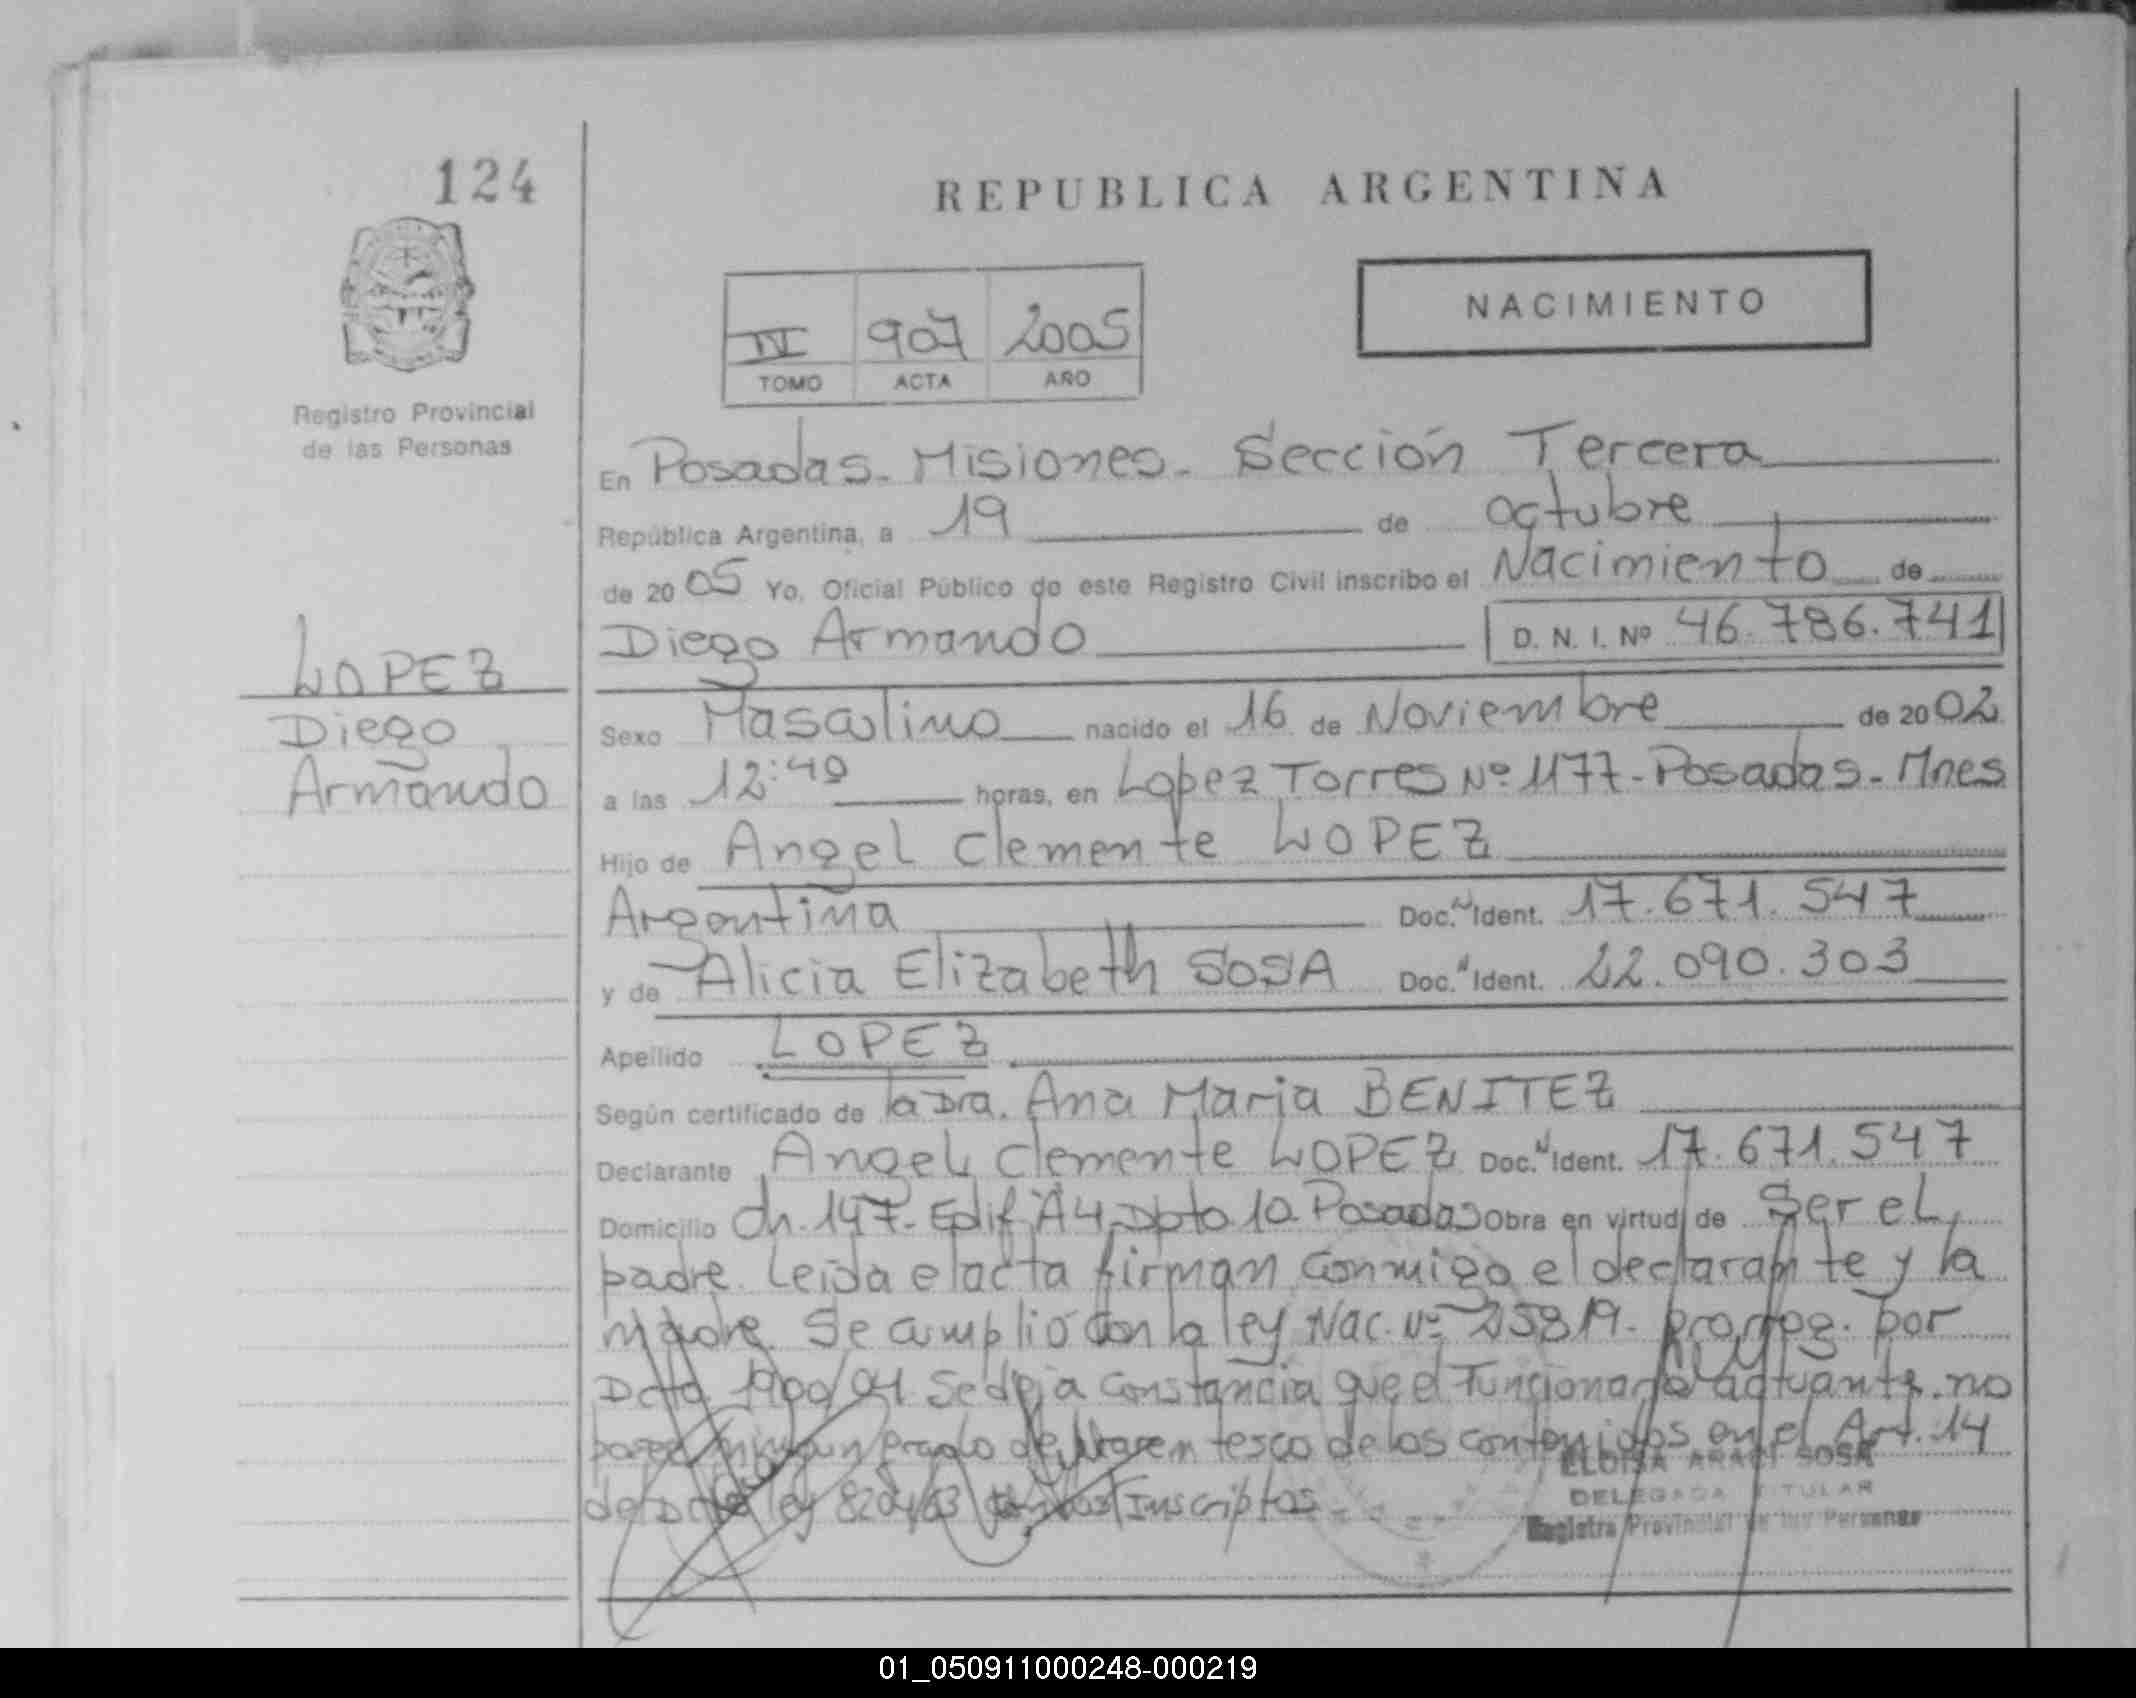 124
REPUBLICA ARGENTINA
NACIMIENTO
IV 907 2005
TOMO ACTA AÑO
Registro Provincial
de las Personas
En Posadas - Misiones - Sección Tercera
República Argentina, a 19 de octubre
de 2005 Yo, Oficial Público de este Registro Civil inscribo el Nacimiento de
Diego Armando D. N. I. Nº 46.786.741
LOPEZ
Diego
Armando
Sexo Masculino nacido el 16 de Noviembre de 2002
a las 12:40 horas, en Lopez Torres Nº 1177 - Posadas - Mnes
Hijo de Angel Clemente LOPEZ
Argentina Doc. Ident. 17.671.547
y de Alicia Elizabeth SOSA Doc. Ident. 22.090.303
Apellido LOPEZ
Según certificado de la Dra. Ana Maria BENITEZ
Declarante Angel Clemente LOPEZ Doc. Ident. 17.671.547
Domicilio Ch. 147 - Edif A4 Dpto 10 Posadas Obra en virtud de Ser el
padre. Leida el acta firman conmigo el declarante y la
madre. Se cumplió con la ley Nac. Nº 25819 - prorrog. por
Dcto 1900/04 Se deja constancia que el Funcionario actuante no
posee ningun grado de Parentesco de los contenidos en el Art. 14
del Dcto ley 8204/63 Inscriptos
ELOISA ARACI SOSA
DELEGADA TITULAR
Registro Provincial de las Personas
01_050911000248-000219